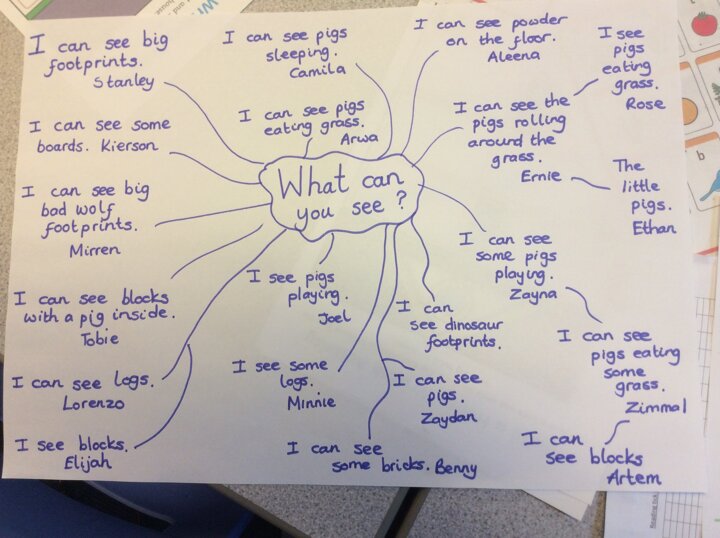 I can see big
footprints.
Stanley
I can see pigs
sleeping.
Camila
I can see powder
on the floor.
Aleena
I see
pigs
eating
grass.
Rose
I can see some
boards. Kierson
I can see pigs
eating grass.
Arwa
I can see the
pigs rolling
around the
grass.
Ernie
The
little
pigs.
Ethan
What can
you see?
I can see big
bad wolf
footprints.
Mirren
I can see
some pigs
playing.
Zayna
I can see blocks
with a pig inside.
Tobie
I see pigs
playing.
Joel
I can
see dinosaur
footprints.
I can see
pigs eating
some
grass.
Zimmal
I can see logs.
Lorenzo
I see some
logs.
Minnie
I can see
pigs.
Zaydan
I see blocks.
Elijah
I can see
some bricks. Benny
I can
see blocks
Artem